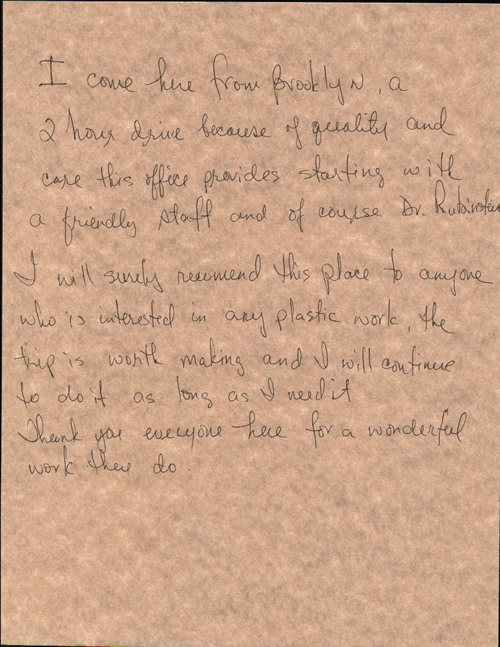 I come here from Brooklyn, a
2 hour drive because of quality and
care this office provides starting with
a friendly staff and of course Dr.
I will surely recomend this place to anyone
who is interested in any plastic work, the
trip is worth making and I will continue
to do it as long as I need it
Thank you everyone here for a wonderful
work they do.